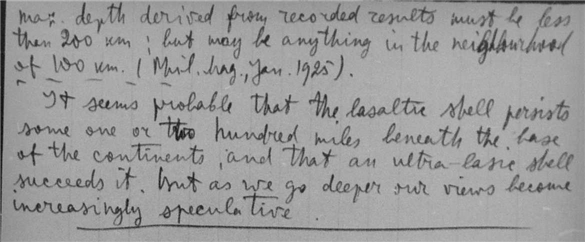 max. depth derived from recorded results must be less
than 200 km; but may be anything in the neighbourhood
of 100 km. (Phil. Mag., Jan. 1925).
It seems probable that the basaltic shell persists
some one or two hundred miles beneath the base
of the continents, and that an ultra-basic shell
succeeds it. But as we go deeper our views become
increasingly speculative.